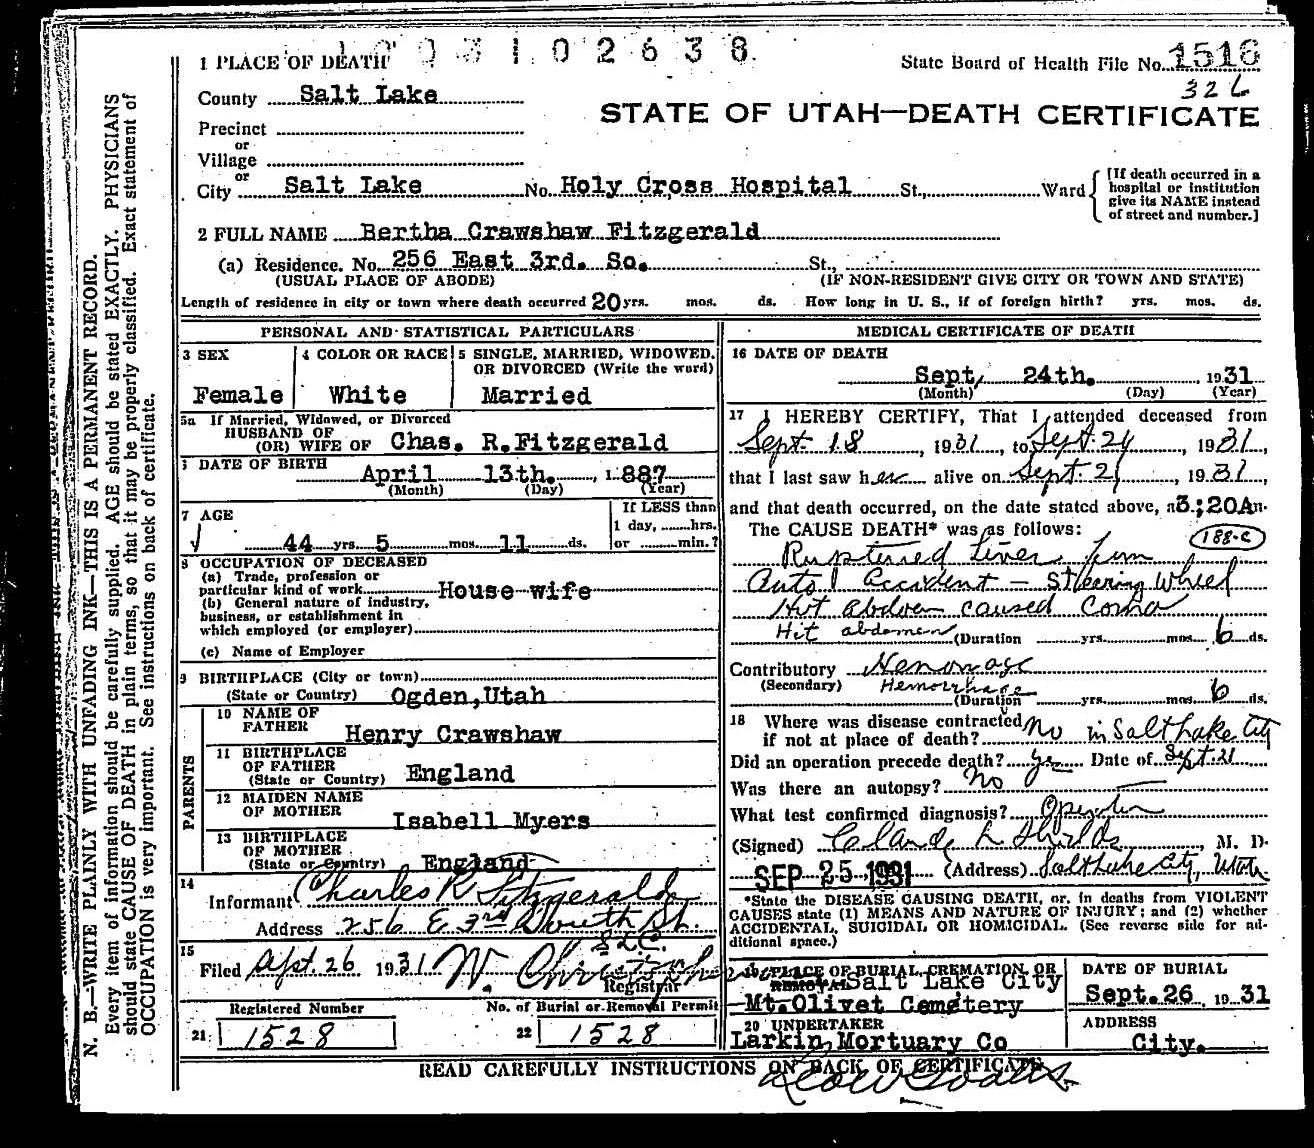 1003102638
1 PLACE OF DEATH
State Board of Health File No. 1516
326
County Salt Lake
STATE OF UTAH—DEATH CERTIFICATE
Precinct
or
Village
or
City Salt Lake No. Holy Cross Hospital St., Ward
[If death occurred in a
hospital or institution
give its NAME instead
of street and number.]
2 FULL NAME Bertha Crawshaw Fitzgerald
(a) Residence. No. 256 East 3rd. So. St.,
(USUAL PLACE OF ABODE) (IF NON-RESIDENT GIVE CITY OR TOWN AND STATE)
Length of residence in city or town where death occurred 20 yrs. mos. ds. How long in U. S., if of foreign birth? yrs. mos. ds.
PERSONAL AND STATISTICAL PARTICULARS
3 SEX
Female
4 COLOR OR RACE
White
5 SINGLE, MARRIED, WIDOWED,
OR DIVORCED (Write the word)
Married
5a If Married, Widowed, or Divorced
HUSBAND OF
(OR) WIFE OF Chas. R. Fitzgerald
DATE OF BIRTH
April 13th. , 1887
(Month) (Day) (Year)
7 AGE
44 yrs. 5 mos. 11 ds.
If LESS than
1 day, hrs.
or min.?
8 OCCUPATION OF DECEASED
(a) Trade, profession or
particular kind of work House wife
(b) General nature of industry,
business, or establishment in
which employed (or employer)
(c) Name of Employer
9 BIRTHPLACE (City or town)
(State or Country) Ogden, Utah
PARENTS
10 NAME OF
FATHER
Henry Crawshaw
11 BIRTHPLACE
OF FATHER
(State or Country) England
12 MAIDEN NAME
OF MOTHER
Isabell Myers
13 BIRTHPLACE
OF MOTHER
(State or Country) England
14
Informant Charles R Fitzgerald
Address 256 E 3rd South St.
S L C.
15
Filed Sept. 26 1931 W. Christopherson
Registrar
Registered Number
21 1528
No. of Burial or Removal Permit
22 1528
MEDICAL CERTIFICATE OF DEATH
16 DATE OF DEATH
Sept, 24th. , 1931
(Month) (Day) (Year)
17 I HEREBY CERTIFY, That I attended deceased from
Sept 18, 1931, to Sept 24, 1931,
that I last saw her alive on Sept 24, 1931,
and that death occurred, on the date stated above, a 3:20A m.
The CAUSE DEATH* was as follows:
188-c
Ruptured Liver from
Auto Accident – Steering Wheel
Hit abdomen caused Coma
Hit abdomen (Duration yrs. mos. 6 ds.
Contributory Hemorrage
(Secondary) Hemorrhage
(Duration yrs. mos. 6 ds.
18 Where was disease contracted
if not at place of death? No in Salt Lake City
Did an operation precede death? yes Date of Sept. 21
Was there an autopsy? No
What test confirmed diagnosis? Operation
(Signed) Claude L Shields, M. D.
SEP 25 1931 (Address) Salt Lake City, Utah
*State the DISEASE CAUSING DEATH, or, in deaths from VIOLENT
CAUSES state (1) MEANS AND NATURE OF INJURY; and (2) whether
ACCIDENTAL, SUICIDAL OR HOMICIDAL. (See reverse side for ad-
ditional space.)
19 PLACE OF BURIAL, CREMATION, OR
REMOVAL Salt Lake City
Mt. Olivet Cemetery
DATE OF BURIAL
Sept. 26 1931
20 UNDERTAKER
Larkin Mortuary Co
ADDRESS
City.
READ CAREFULLY INSTRUCTIONS ON BACK OF CERTIFICATE
N. B.—WRITE PLAINLY WITH UNFADING INK—THIS IS A PERMANENT RECORD.
Every item of information should be carefully supplied. AGE should be stated EXACTLY. PHYSICIANS
should state CAUSE OF DEATH in plain terms, so that it may be properly classified. Exact statement of
OCCUPATION is very important. See instructions on back of certificate.